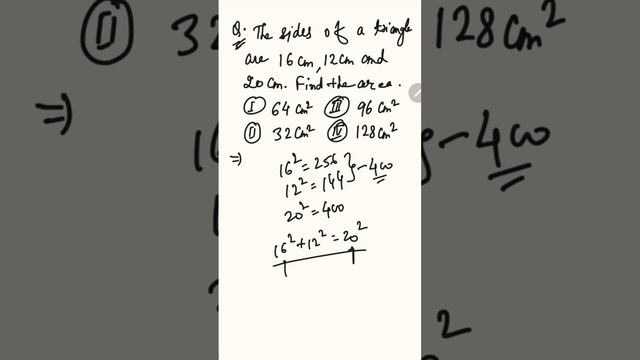 Q. The sides of a triangle
are 16 cm, 12 cm and
20 cm. Find the area.
Ⓘ 64 cm² Ⓘⓘⓘ 96 cm²
Ⓘⓘ 32 cm² Ⓘⓥ 128 cm²
⇒ 16² = 256 } – 400
12² = 144
20² = 400
16² + 12² = 20²